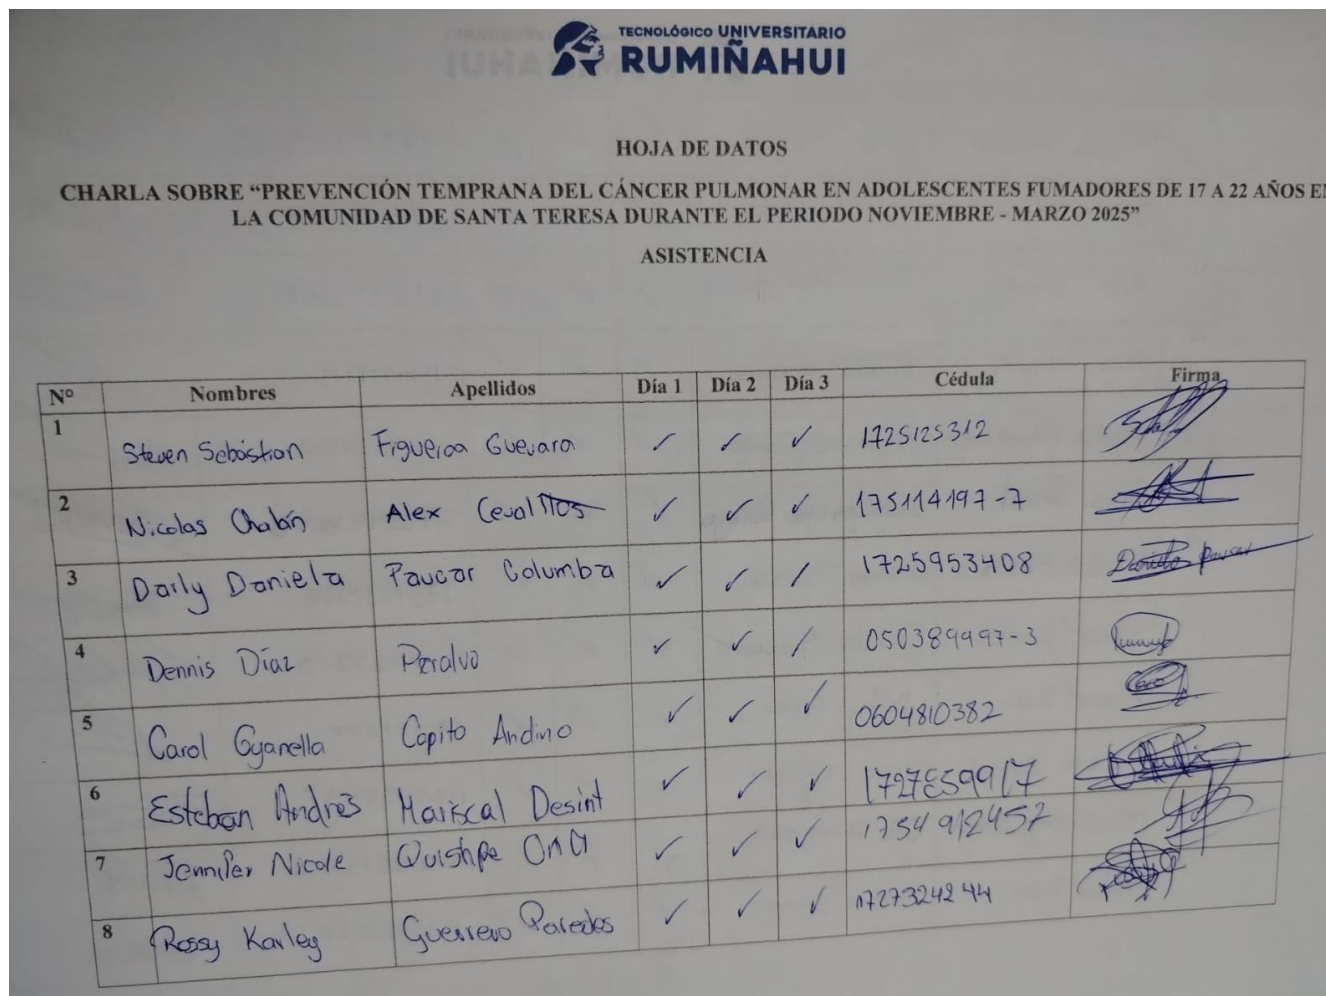 TECNOLÓGICO UNIVERSITARIO
RUMIÑAHUI
HOJA DE DATOS
CHARLA SOBRE “PREVENCIÓN TEMPRANA DEL CÁNCER PULMONAR EN ADOLESCENTES FUMADORES DE 17 A 22 AÑOS EN
LA COMUNIDAD DE SANTA TERESA DURANTE EL PERIODO NOVIEMBRE - MARZO 2025”
ASISTENCIA
Nº Nombres Apellidos Día 1 Día 2 Día 3 Cédula Firma
1 Steven Sebástian Figueroa Guevara ✓ ✓ ✓ 1725125312
2 Nicolas Chabán Alex Cevallos ✓ ✓ ✓ 175114197-7
3 Darly Daniela Paucar Columba ✓ ✓ / 1725953408
4 Dennis Díaz Peralvo ✓ ✓ / 050389997-3
5 Carol Gyanella Copito Andino ✓ ✓ ✓ 0604810382
6 Esteban Andres Mariscal Desint ✓ ✓ ✓
7 Jennifer Nicole Quishpe ✓ ✓ ✓ 1754912457
8 Rossy Karley Guerrero Paredes ✓ ✓ ✓ 1727324244